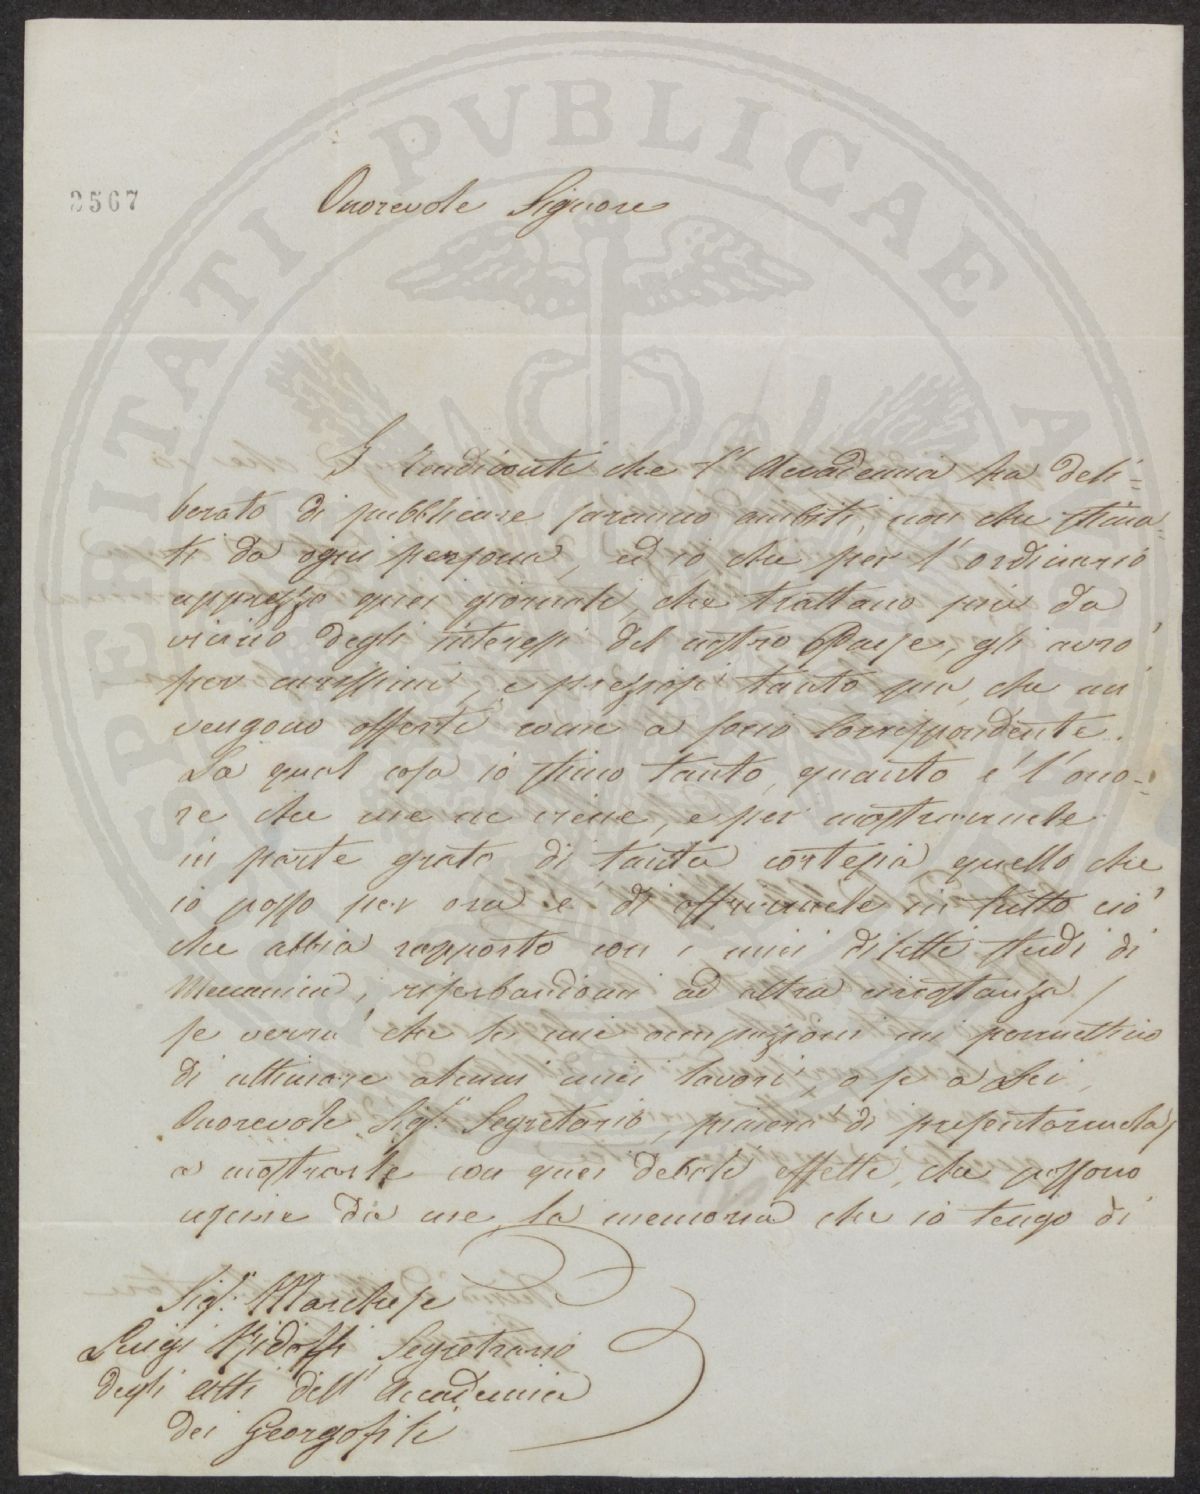 PROSPERITATI PVBLICAE AVGENDAE
2567
Onorevole Signore
I Rendiconti che l'Accademia ha deli=
berato di pubblicare saranno ambiti, non che stima=
ti da ogni persona, ed io che per l'ordinario
apprezzo quei giornali, che trattano piu da
vicino degli interessi del nostro Paese, gli avrò
per carissimi, e preziosi tanto piu, che mi
vengono offerti come a socio Corrispondente.
La qual cosa io stimo tanto, quanto è l'ono=
re che me ne viene, e per mostrarmele
in parte grato di tanta cortesia, quello che
io posso per ora è di offrirmele in tutto ciò
che abbia rapporto con i miei diletti studi di
Meccanica, riserbandomi ad altra circostanza /
se verrà che le mie occupazioni mi permettino
di ultimare alcuni miei lavori, o se a Lei,
Onorevole Sig.r Segretario, piacerà di presentarmela /
a mostrarle con quei deboli effetti, che possono
uscire da me, la memoria che io tengo di
Sig.r Marchese
Luigi Ridolfi Segretario
degli Atti dell'Accademia
dei Georgofili